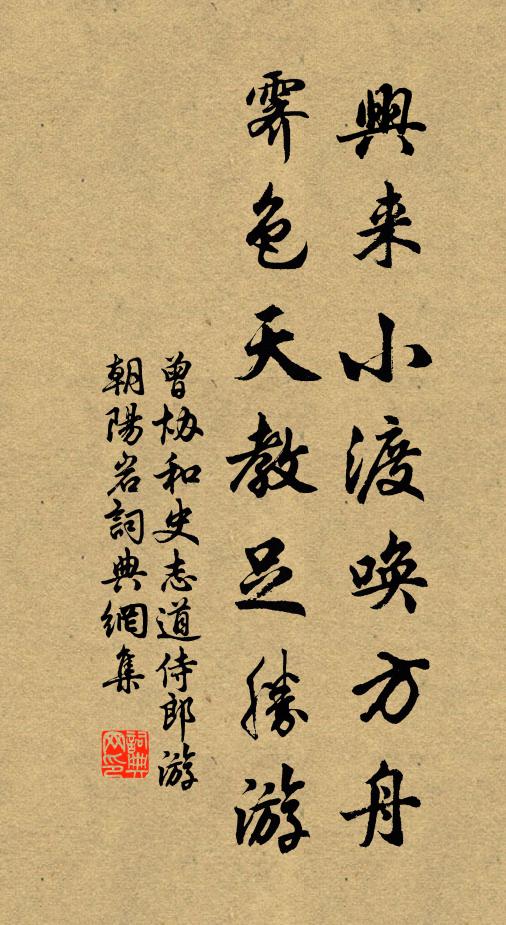 興来小渡唤方舟
霽色天教足勝游
曾协和史志道侍郎游
朝陽岩詞典網集
詞典网印